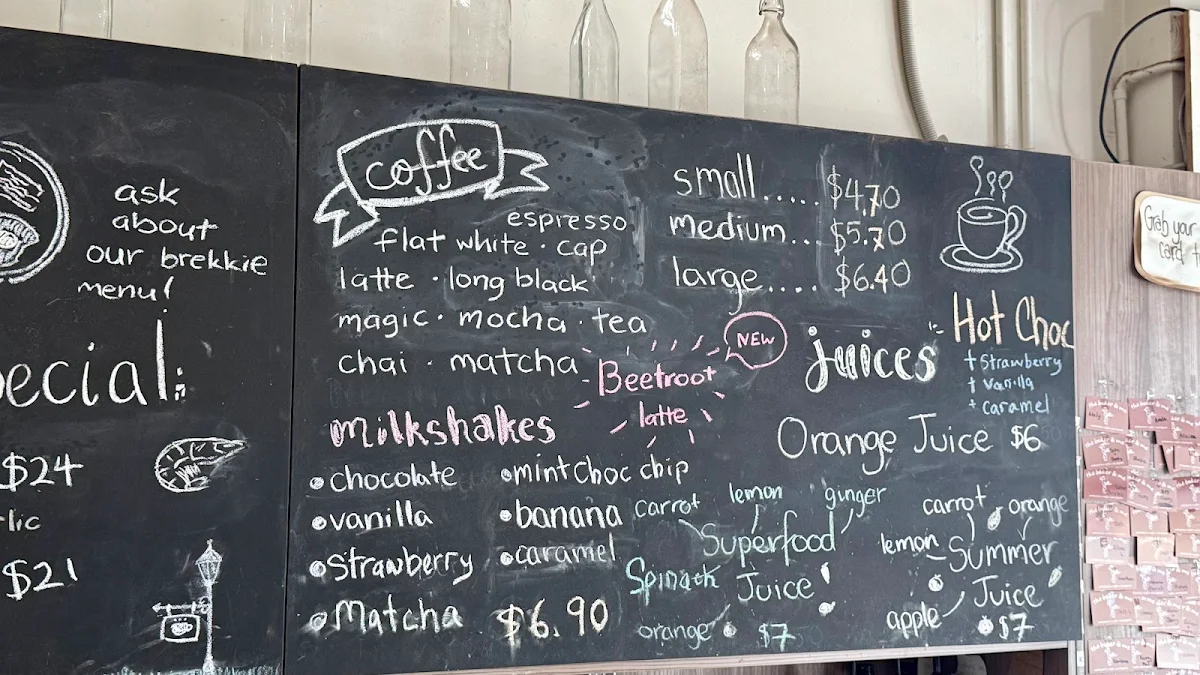 ask
about
our brekkie
menu!
ecial:
$24
lic
$21
coffee
espresso
flat white · cap
latte · long black
magic · mocha · tea
chai · matcha
small..... $4.70
medium... $5.70
large.... $6.40
NEW
Beetroot
latte
milkshakes
• chocolate
• vanilla
• strawberry
• Matcha
• mint choc chip
• banana
• caramel
$6.90
juices
Orange Juice $6
carrot lemon ginger
Superfood
Spinach Juice
orange $7
carrot orange
lemon Summer
Juice
apple $7
Hot Choc
+ Strawberry
+ vanilla
+ caramel
Grab your
card